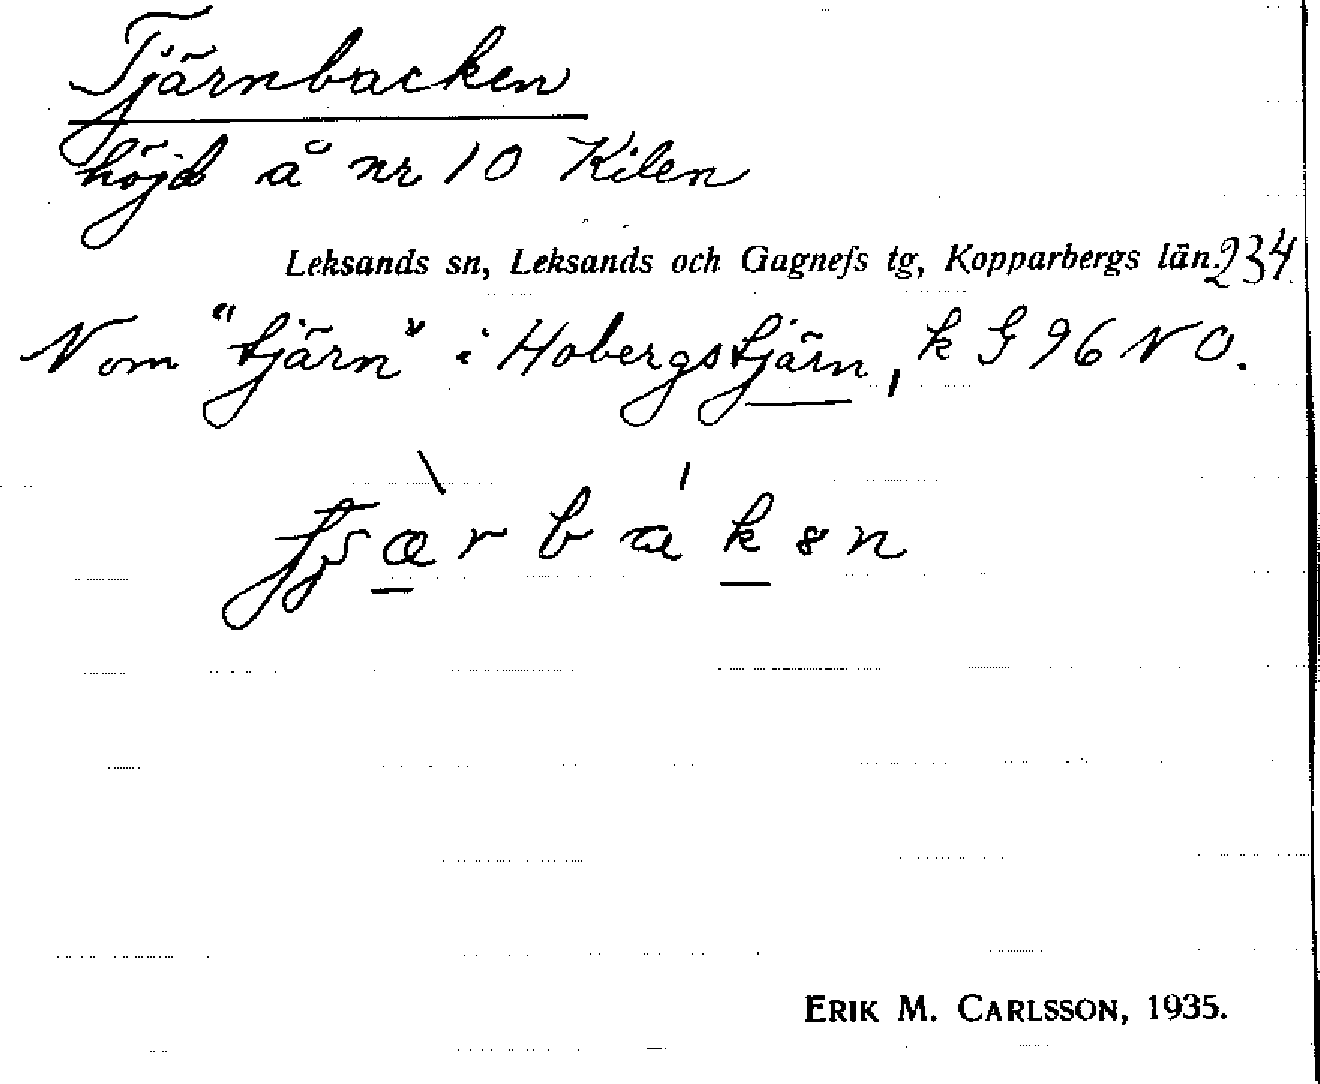 Tjärnbacken
höjd å nr 10 Kilen
Leksands sn, Leksands och Gagnefs tg, Kopparbergs län. 234
N om "tjärn" i Hobergstjärn, k G 96 NO.
ERIK M. CARLSSON, 1935.